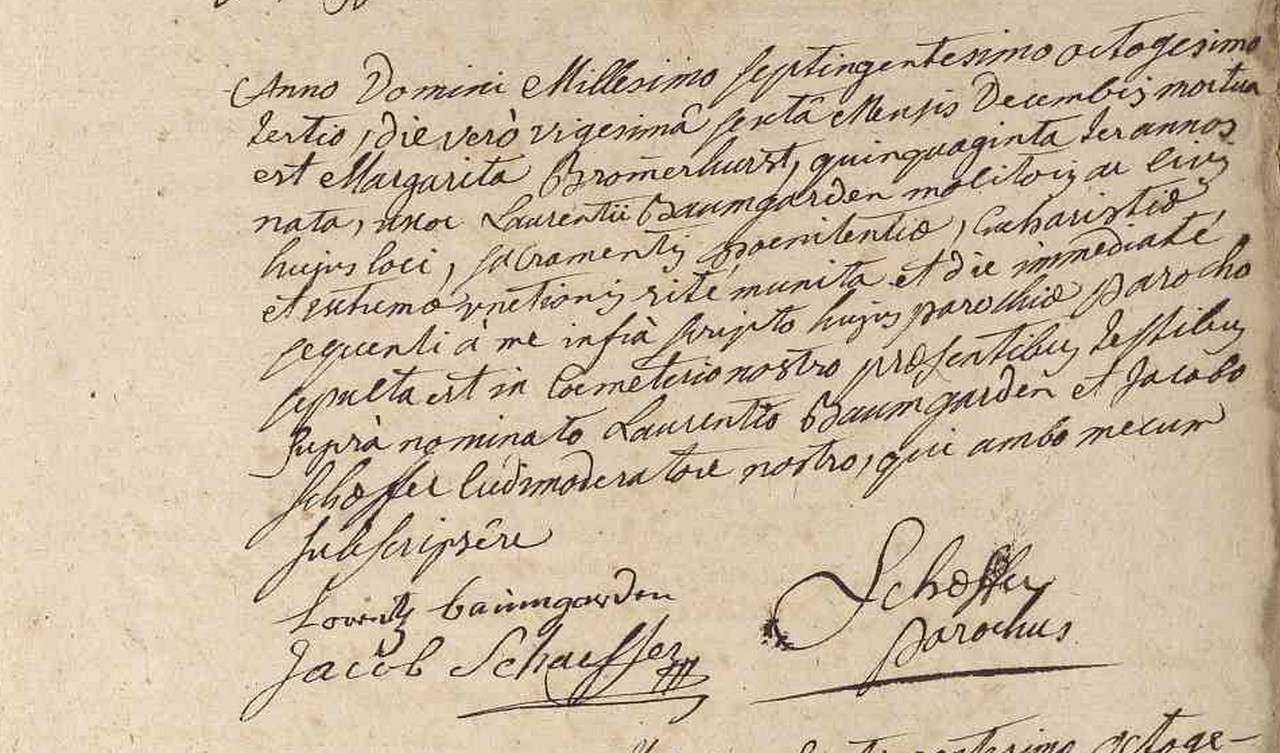 Anno Domini Millesimo septingentesimo octogesimo
tertio, die verò vigesimâ sextâ Mensis Decembris mortua
est Margarita Brom̄erhurst, quinquaginta ter annos
nata, uxor Laurentii Baumgarden molitoris ac civis
hujus loci, sacramentis poenitentiæ, Eucharistiæ
et extremæ unctionis rité munita et die immediaté
sequenti à me infrà scripto hujus parochiæ parocho
sepulta est in Coemeterio nostro præsentibus testibus
suprà nominato Laurentio Baumgarden et Jacobo
Schæffer ludimoderatore nostro, qui ambo mecum
subscripsêre
Lorentz baumgarden
Jacob Schaeffer
Schæffer
parochus
octoge-